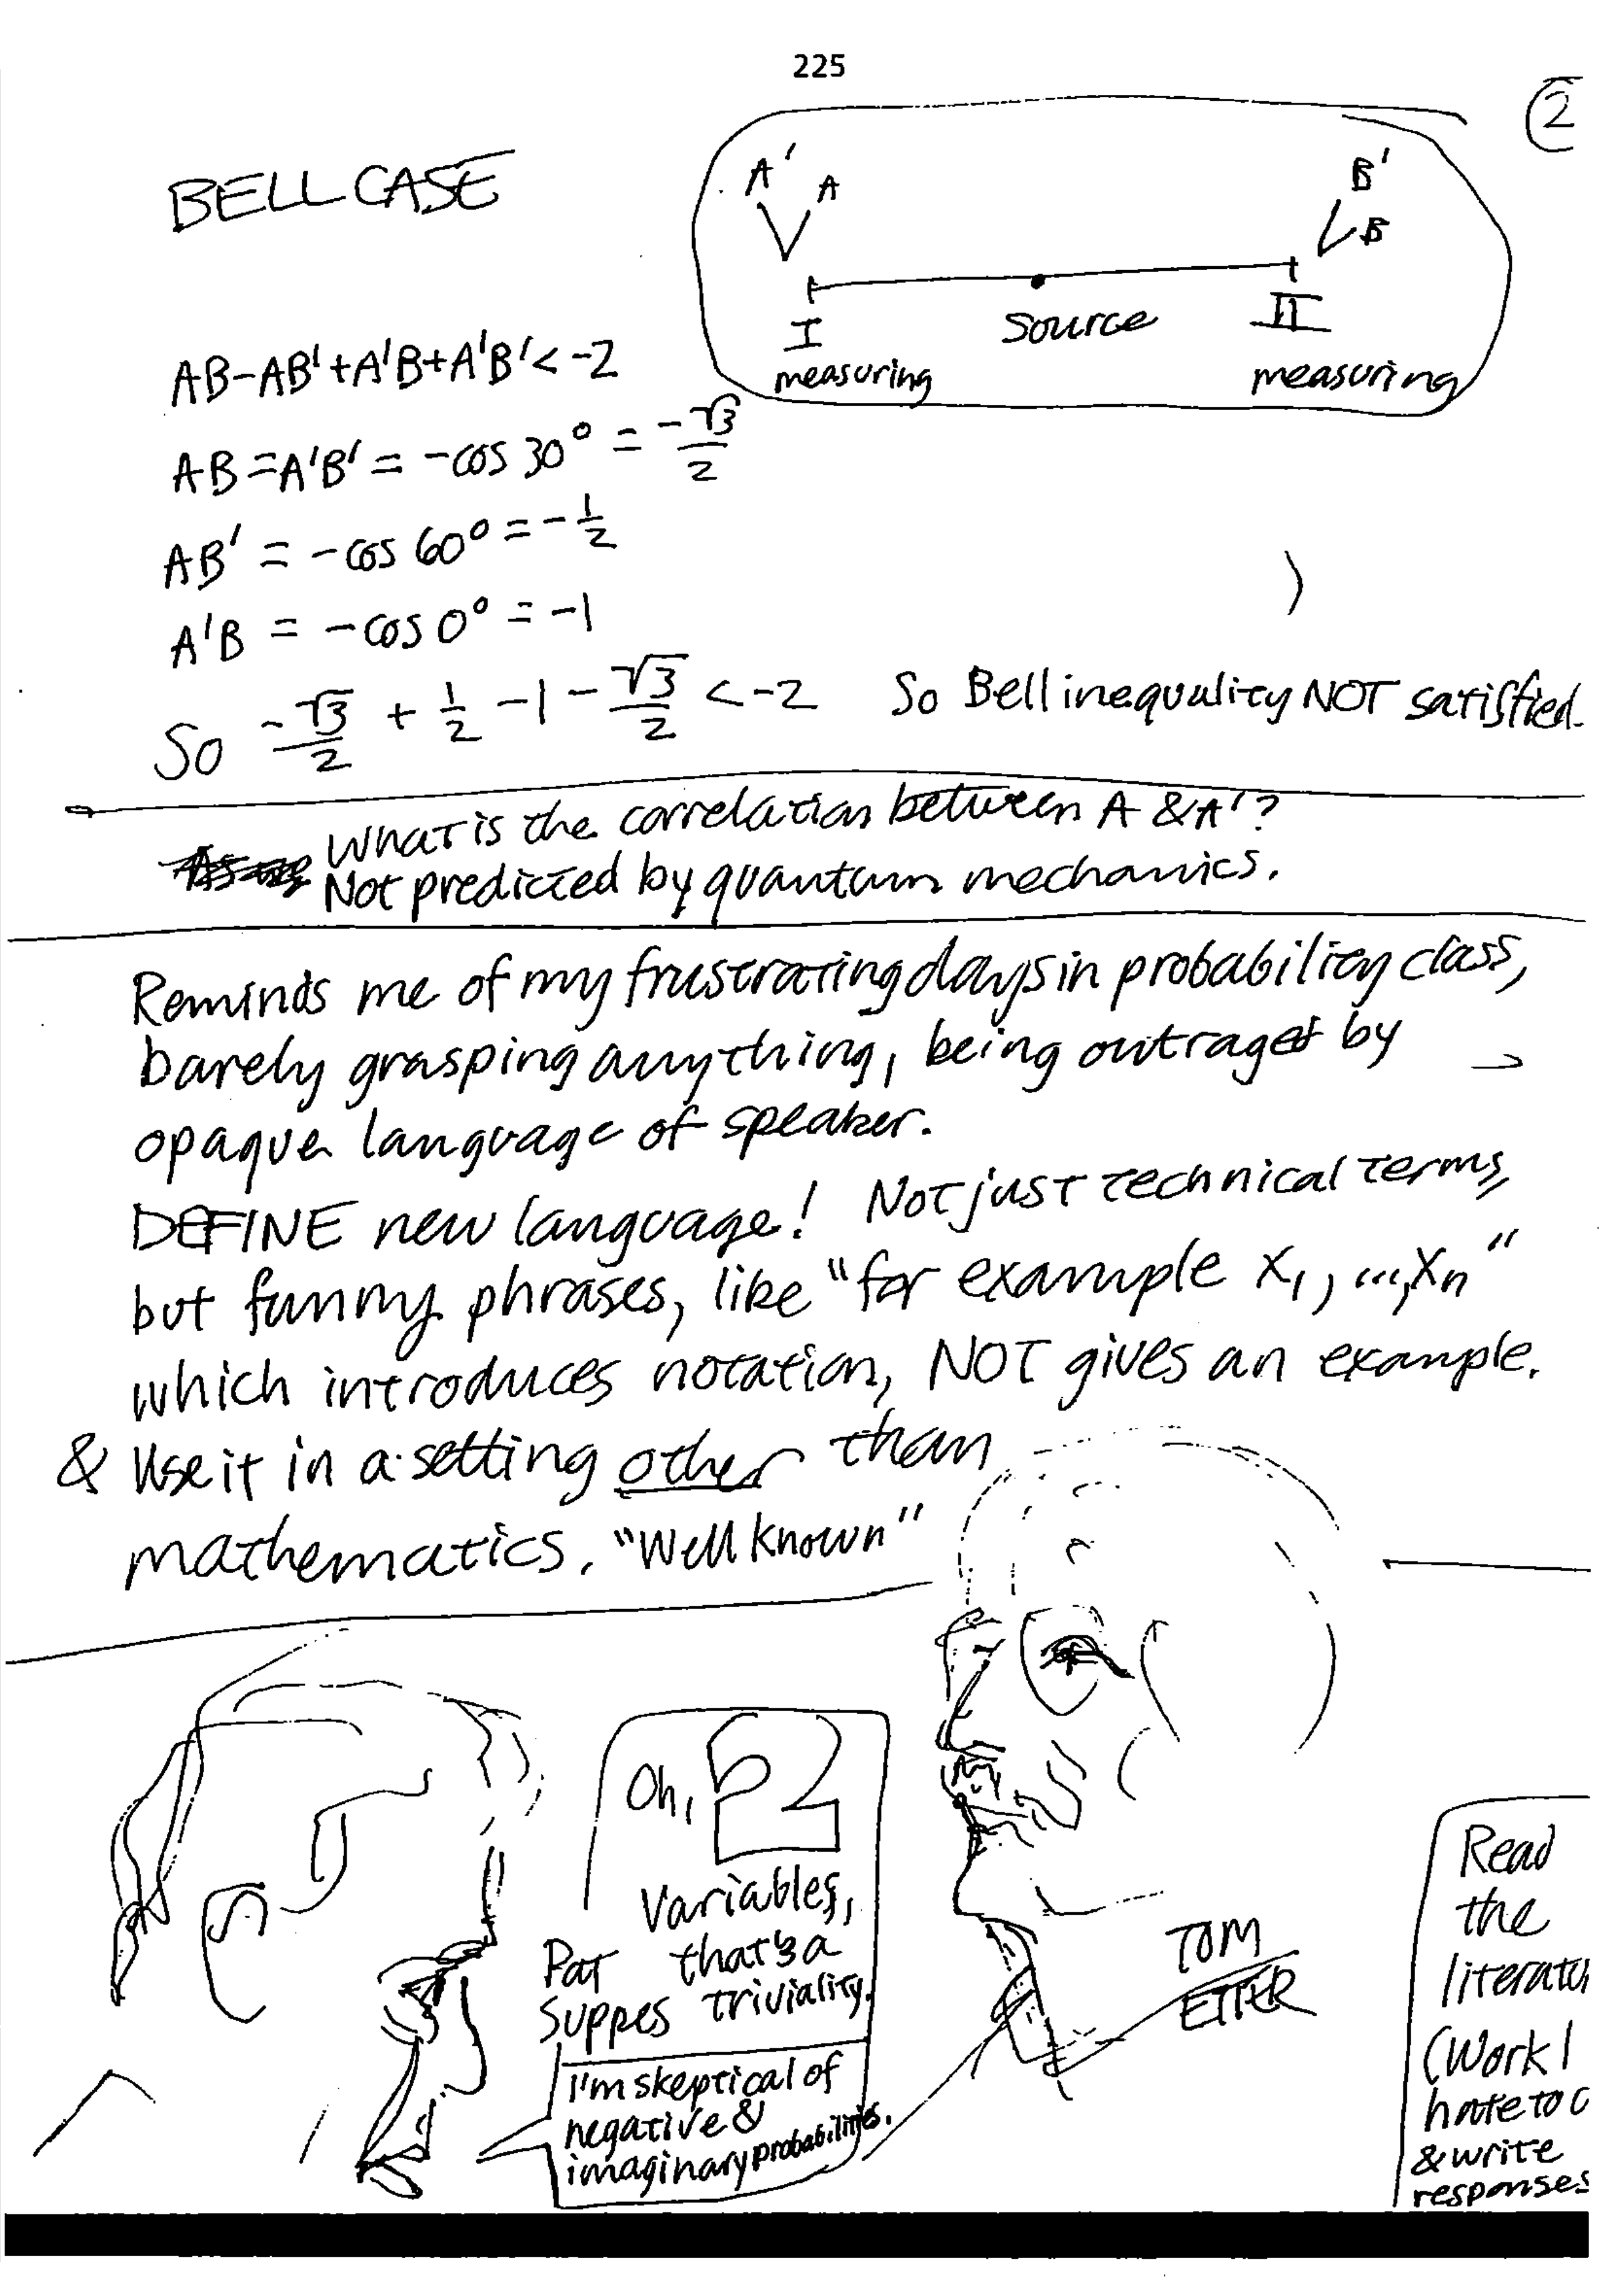 225
2
BELL CASE
A' A
B'
B
I
Source
II
measuring
measuring
AB-AB'+A'B+A'B'<-2
AB=A'B'= -cos 30° = -√3/2
AB' = -cos 60° = -1/2
A'B = -cos 0° = -1
So -√3/2 + 1/2 -1 - √3/2 < -2 So Bell inequality NOT satisfied.
What is the correlation between A & A'?
Not predicted by quantum mechanics.
Reminds me of my frustrating days in probability class,
barely grasping anything, being outraged by
opaque language of speaker.
DEFINE new language! Not just technical terms,
but funny phrases, like "for example X₁, ..., Xn"
which introduces notation, NOT gives an example.
& Use it in a setting other than
mathematics. "Well known"
Oh, 2
Variables,
that's a
triviality.
Pat
Suppes
I'm skeptical of
negative &
imaginary probabilities.
TOM
ETTER
Read
the
literatu
(Work I
hate to
& write
responses